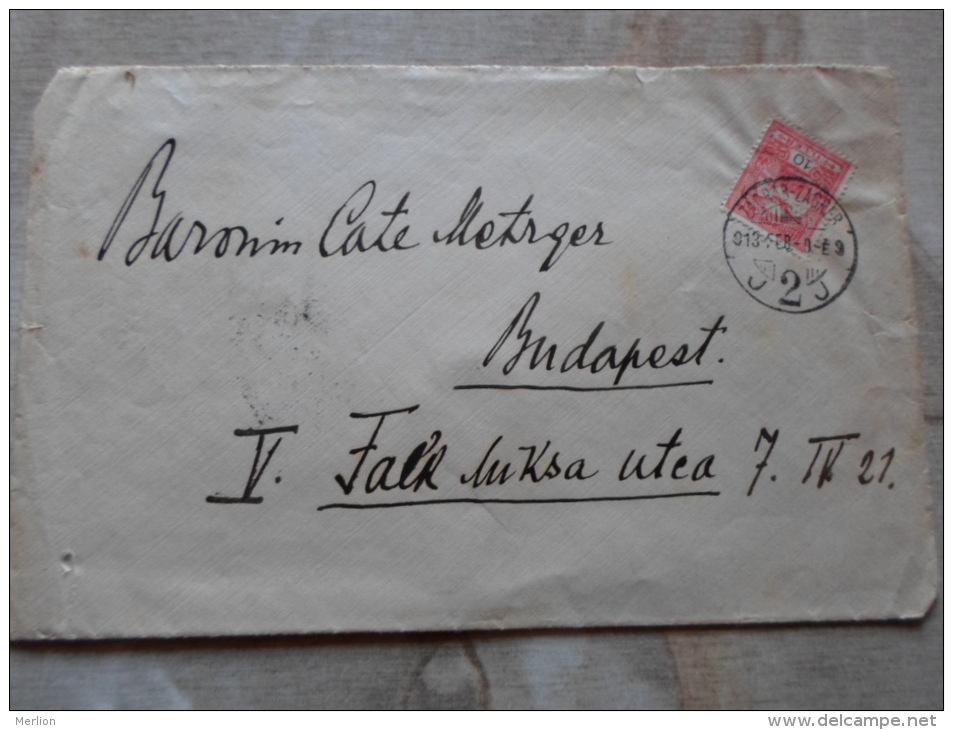 Baronin Cate Metzger
10
ZÁGRÁB-ZAGREB
913 FEB
2
Budapest.
V. Falk Miksa utca 7. IV 21.
Merlion
www.delcampe.net